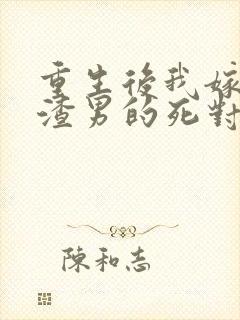 重生後我嫁
渣男的死對
陳和志